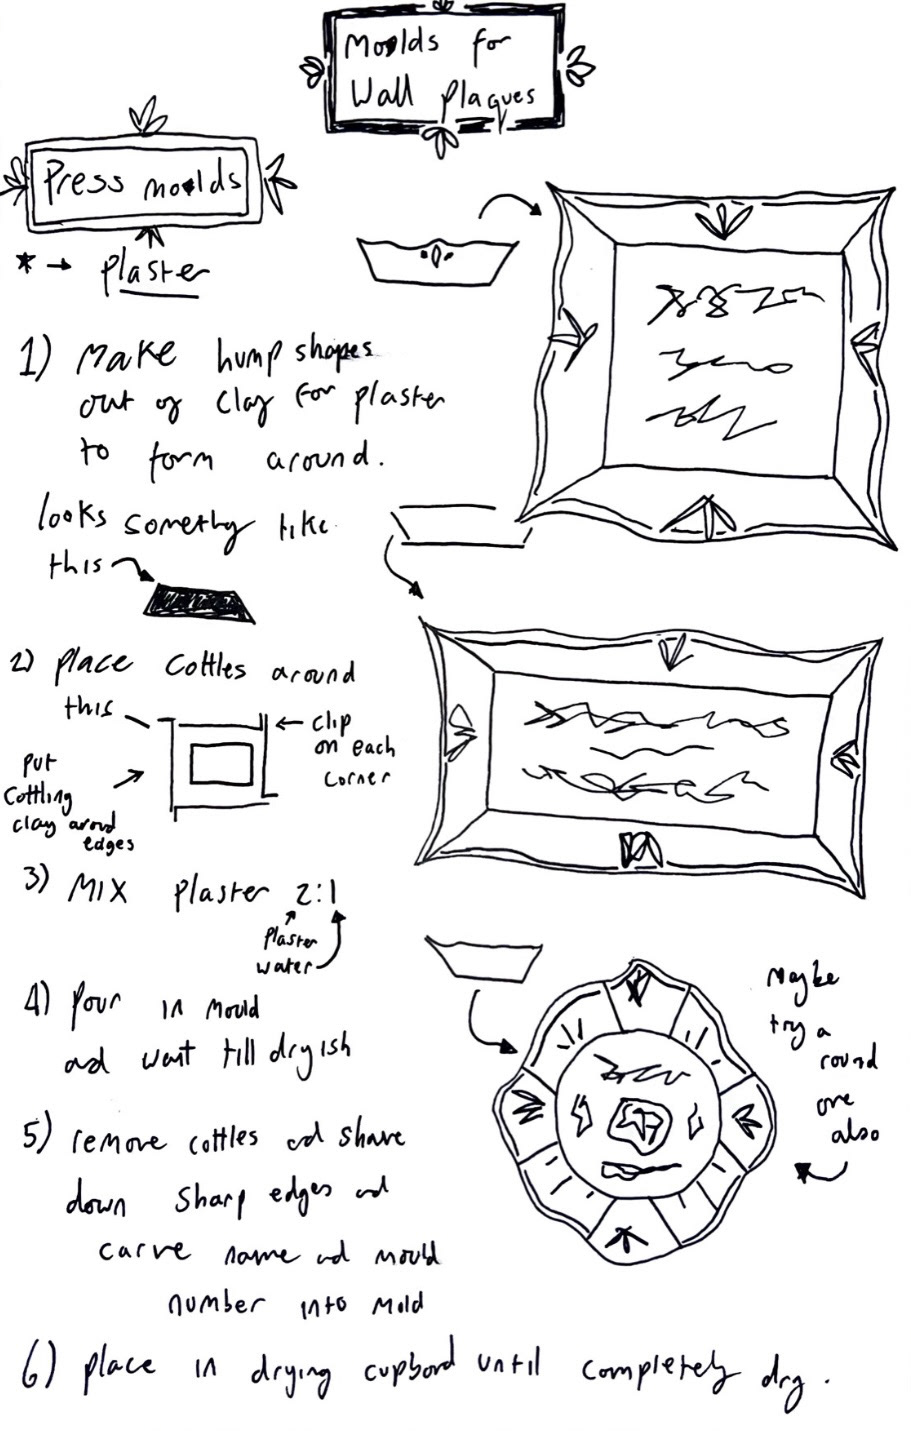 Moulds for
Wall plaques
Press moulds
* → plaster
1) Make hump shapes
out of clay for plaster
to form around.
looks somethg like
this
2) place Cottles around
this
← clip
on each
corner
put
Cottling
clay arond
edges
3) MIX plaster 2:1
plaster
water
4) pour in mould
and wait till dryish
5) remove cottles ad shave
down sharp edges ad
carve name ad mould
number into mold
6) place in drying cupbord until completely dry.
Maybe
try a
round
one
also